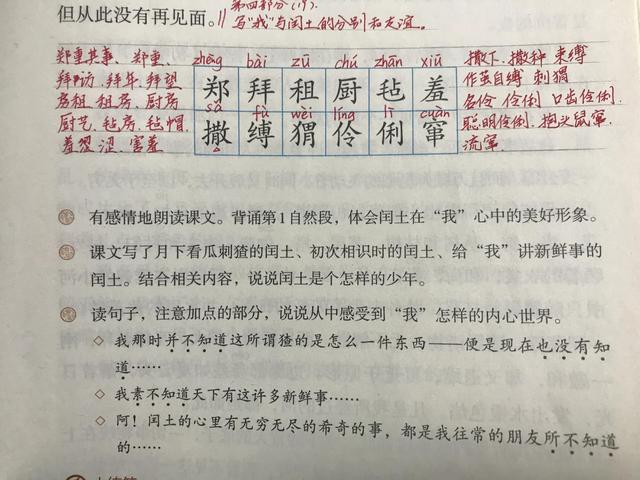 但从此没有再见面。 第四部分(19).
写“我”与闰土的分别和友谊.
郑重其事、郑重、 zhèng bài zū chú zhān xiū 撒下、撒种 束缚
拜访、拜年、拜望 郑 拜 租 厨 毡 羞 作茧自缚 刺猬
房租 租房、厨房 sǎ fù wèi líng lì cuàn 名伶 伶俐 口齿伶俐.
厨艺、毡房、毡帽. 撒 缚 猬 伶 俐 窜 聪明伶俐. 抱头鼠窜.
羞涩 涩、害羞 流窜.
有感情地朗读课文。背诵第1自然段，体会闰土在“我”心中的美好形象。
课文写了月下看瓜刺猹的闰土、初次相识时的闰土、给“我”讲新鲜事的
闰土。结合相关内容，说说闰土是个怎样的少年。
读句子，注意加点的部分，说说从中感受到“我”怎样的内心世界。
◇ 我那时并不知道这所谓猹的是怎么一件东西——便是现在也没有知
道……
◇ 我素不知道天下有这许多新鲜事……
◇ 阿！闰土的心里有无穷无尽的希奇的事，都是我往常的朋友所不知道
的……